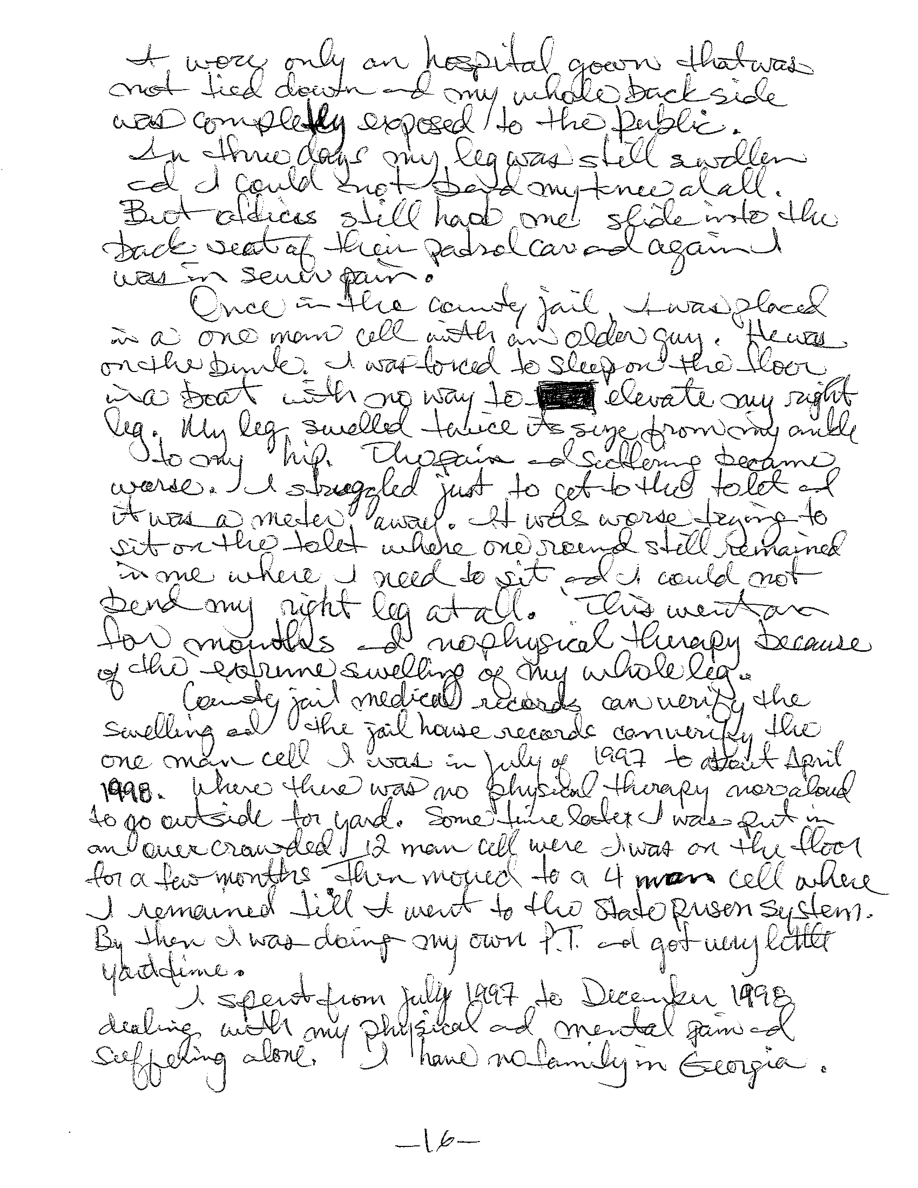 I wore only an hospital gown that was
not tied down and my whole back side
was completly exposed to the public.
In three days my leg was still swollen
ad I could not bend my knee at all.
But offices still had me slide into the
back seat of their patrol car and again I
was in sever pain.
Once in the county jail, I was placed
in a one man cell with an older guy. He was
on the bunk. I was forced to sleep on the floor
in a boat with no way to elevate my right
leg. My leg swelled twice its size from my ankle
to my hip. The pain and suffering became
worse. I struggled just to get to the tolet and
it was a meter away. It was worse trying to
sit on the tolet where one round still remained
in me where I need to sit ad I could not
bend my right leg at all. This went on
for months and no physical therapy because
of the extreme swelling of my whole leg.
County jail medical records can verify the
swelling ad the jail house records can verify the
one man cell I was in July of 1997 to about April
1998. Where there was no physical therapy nor aloud
to go outside for yard. Some time later I was put in
an over crowded 12 man cell were I was on the floor
for a few months Then moved to a 4 man cell where
I remained till I went to the State prison system.
By then I was doing my own P.T. and got very little
yard time.
I spent from July 1997 to December 1998
dealing with my physical ad mental pain ad
suffering alone. I have no family in Georgia.
-16-